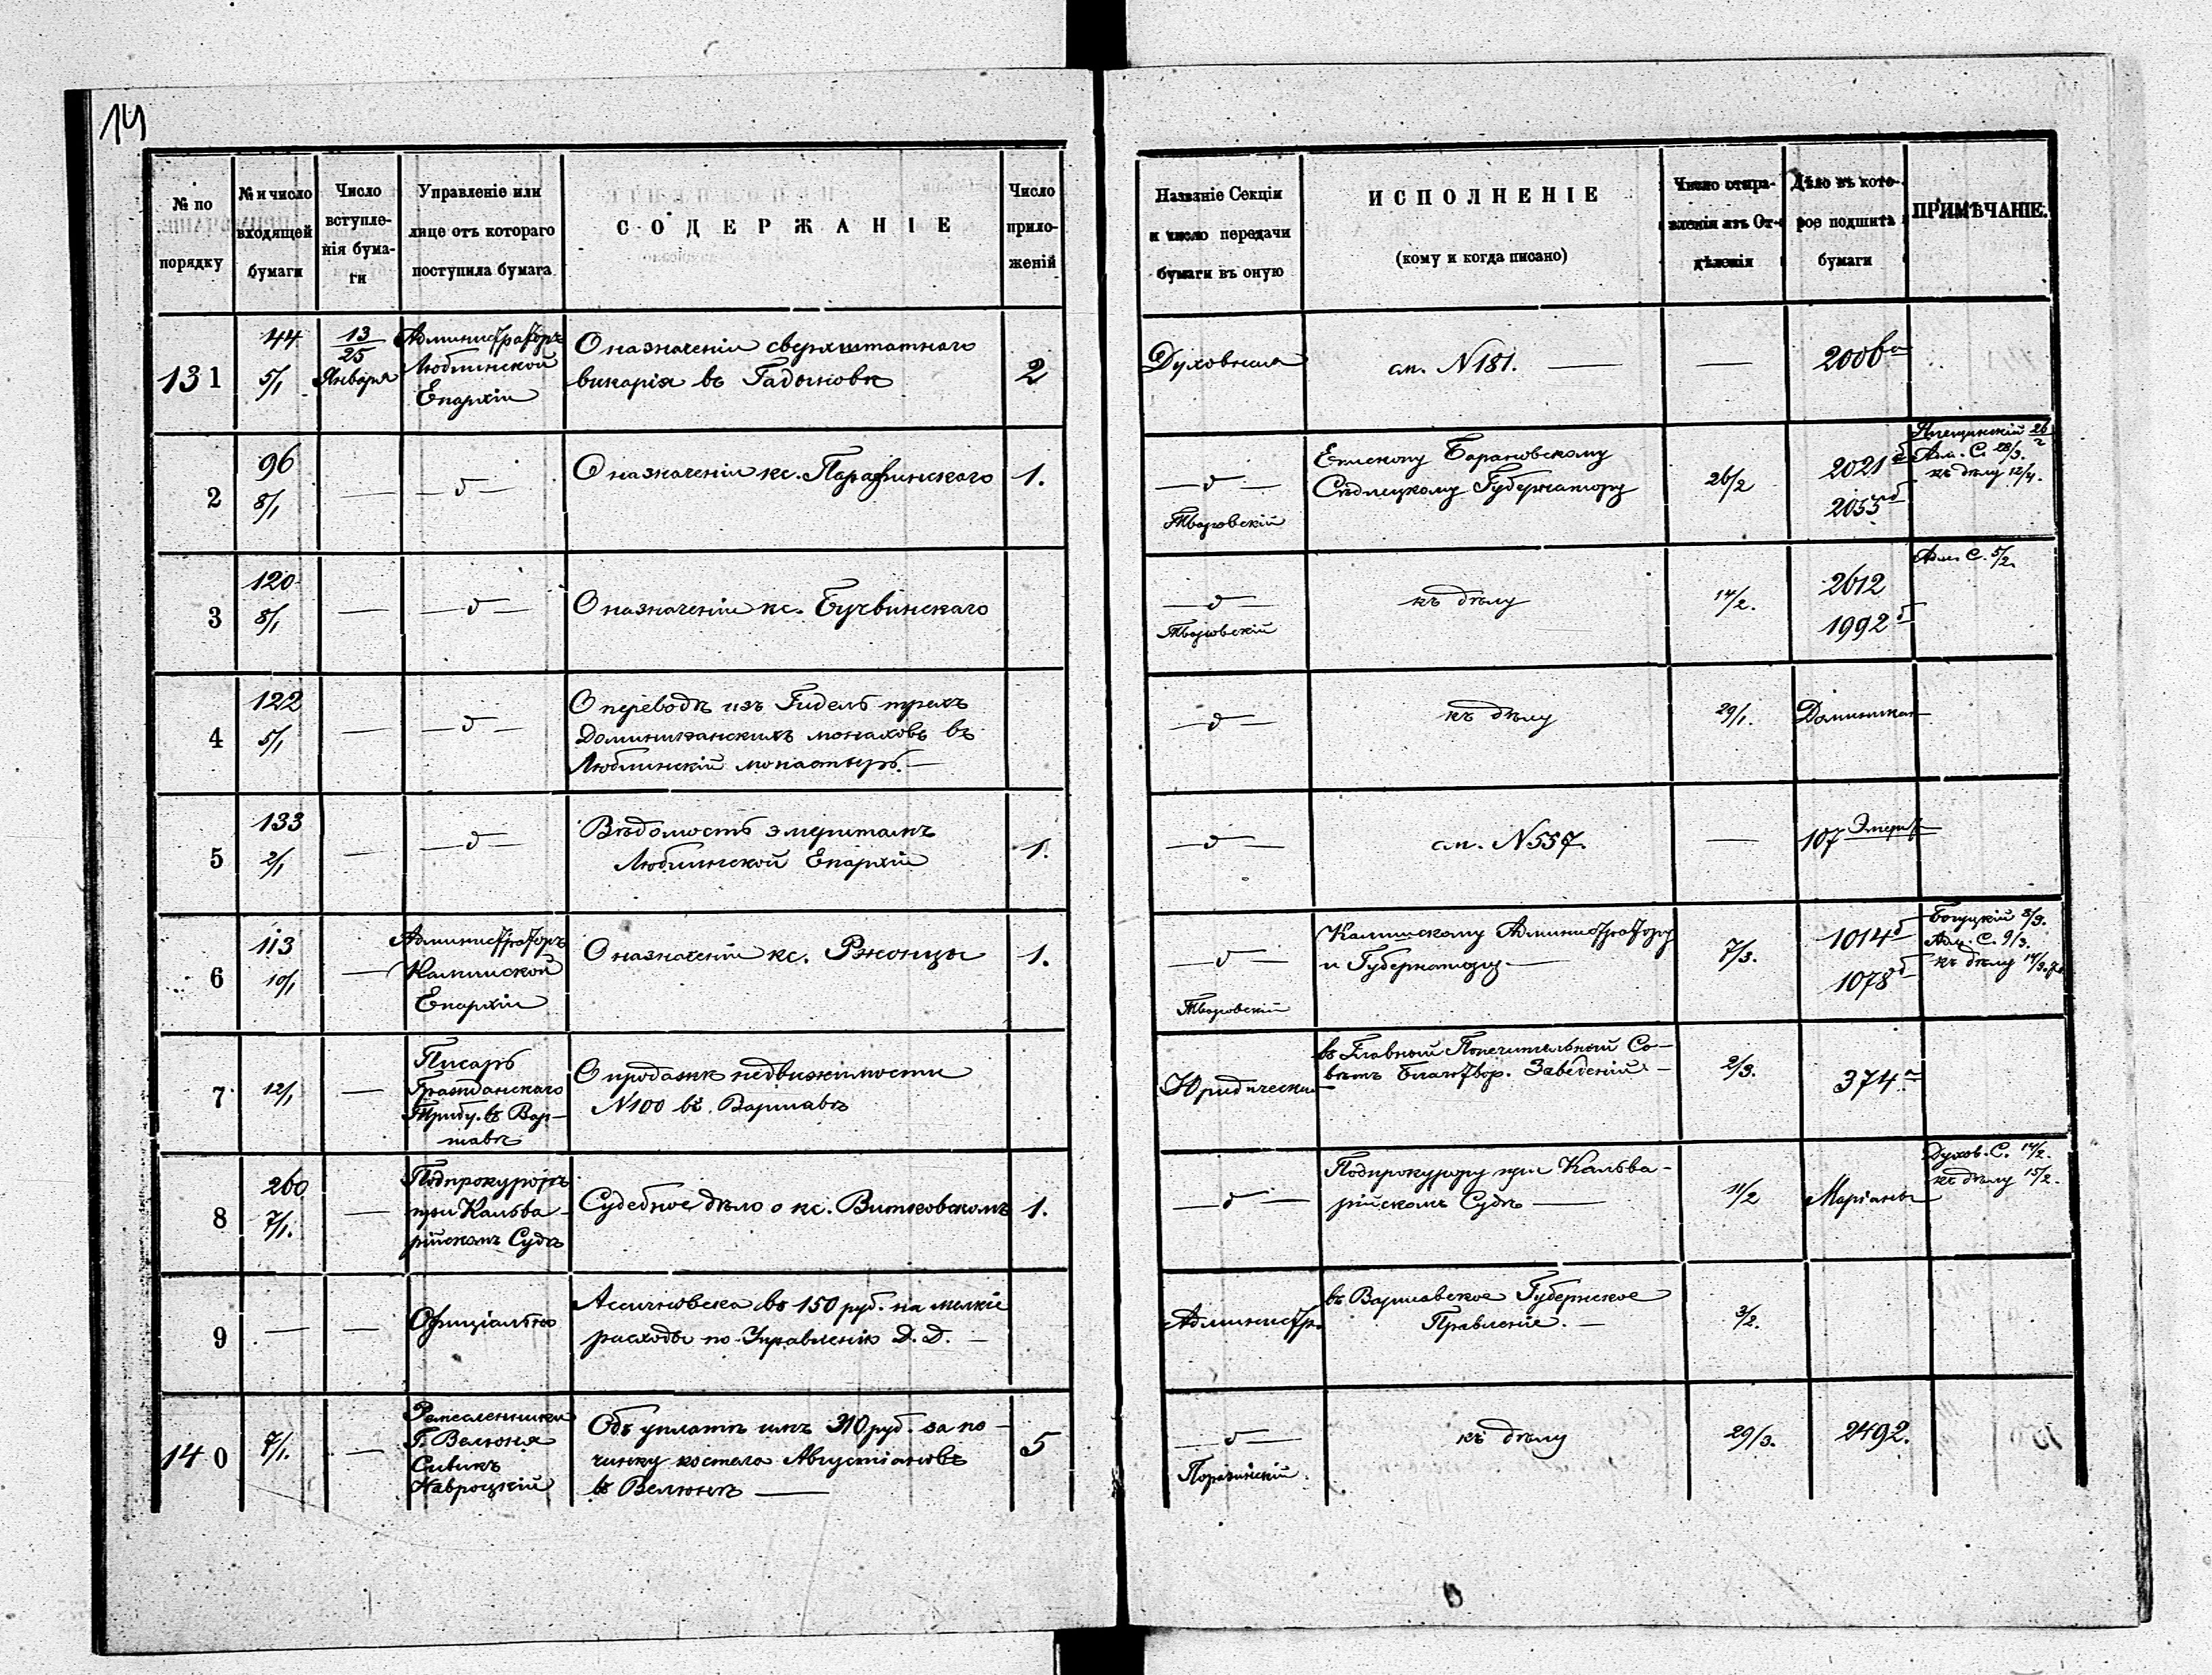 14
№ по порядку
№ и число входящей бумаги
Число вступле-нія бума-ги
Управленіе или лице отъ котораго поступила бумага
СОДЕРЖАНІЕ
Число прило-женій
Названіе Секціи и число передачи бумаги въ оную
ИСПОЛНЕНІЕ
(кому и когда писано)
Число отпра-вленія изъ От-дѣленія
Дѣло въ кото-рое подшита бумаги
ПРИМѢЧАНІЕ.
131
44
5/1
13/25 Января
Администраторъ
Люблинской
Епархіи
О назначеніи сверхштатнаго
викарія въ
2
Духовная
см. N 181.
200
2
96
8/1
О назначеніи кс.
1.
Епископу Барановскому
Сѣдлецкому Губернатору
26/2
2021
2055
Адм. С. 28/3.
къ дѣлу 12/4.
3
120
8/1
О назначеніи кс.
къ дѣлу
14/2.
2612
1992 б
Адм. С. 5/2.
4
122
5/1
О переводѣ изъ Гидель трехъ
Доминиканскихъ монаховъ въ
Люблинскій монастырь.
къ дѣлу
29/1.
Доминикан
5
133
2/1
Вѣдомость эмеритамъ
Люблинской Епархіи
1.
см. N 557.
107 Эмерит
6
113
10/1
Администраторъ
Калишской
Епархіи
О назначеніи кс. Ржонцы
1.
Калишскому Администратору
и Губернатору
7/3.
1014 б
1078 б
Адм. С. 9/3.
къ дѣлу
7
12/1
Писарь
Гражданскаго
Трибу. въ Вар-
шавѣ
О продажѣ недвижимости
N 100 въ Варшавѣ
Юридическая
въ Главный Попечительный Со-
вѣтъ Благотвор. Заведеній
2/3.
374
8
260
7/1.
Подпрокуроръ
при Кальва-
рійскомъ Судѣ
Судебное дѣло о кс. Витковскомъ
1.
Подпрокурору при Кальва-
рійскомъ Судѣ
11/2
Маріаны
Духов. С. 14/2.
къ дѣлу 15/2.
9
Офиціально
Ассигновка въ 150 руб. на мелкіе
расходы по Управленію Д. Д.
Администр.
въ Варшавское Губернское
Правленіе.
3/2.
140
7/1.
Ремесленники
Г. Велюня
Сивикъ
Навроцкій
Объ уплатѣ имъ 310 руб. за по-
чинку костела Августіановъ
въ Велюнѣ
5
къ дѣлу
29/3.
2492.